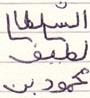 السلطا
لطيف
محمود بن